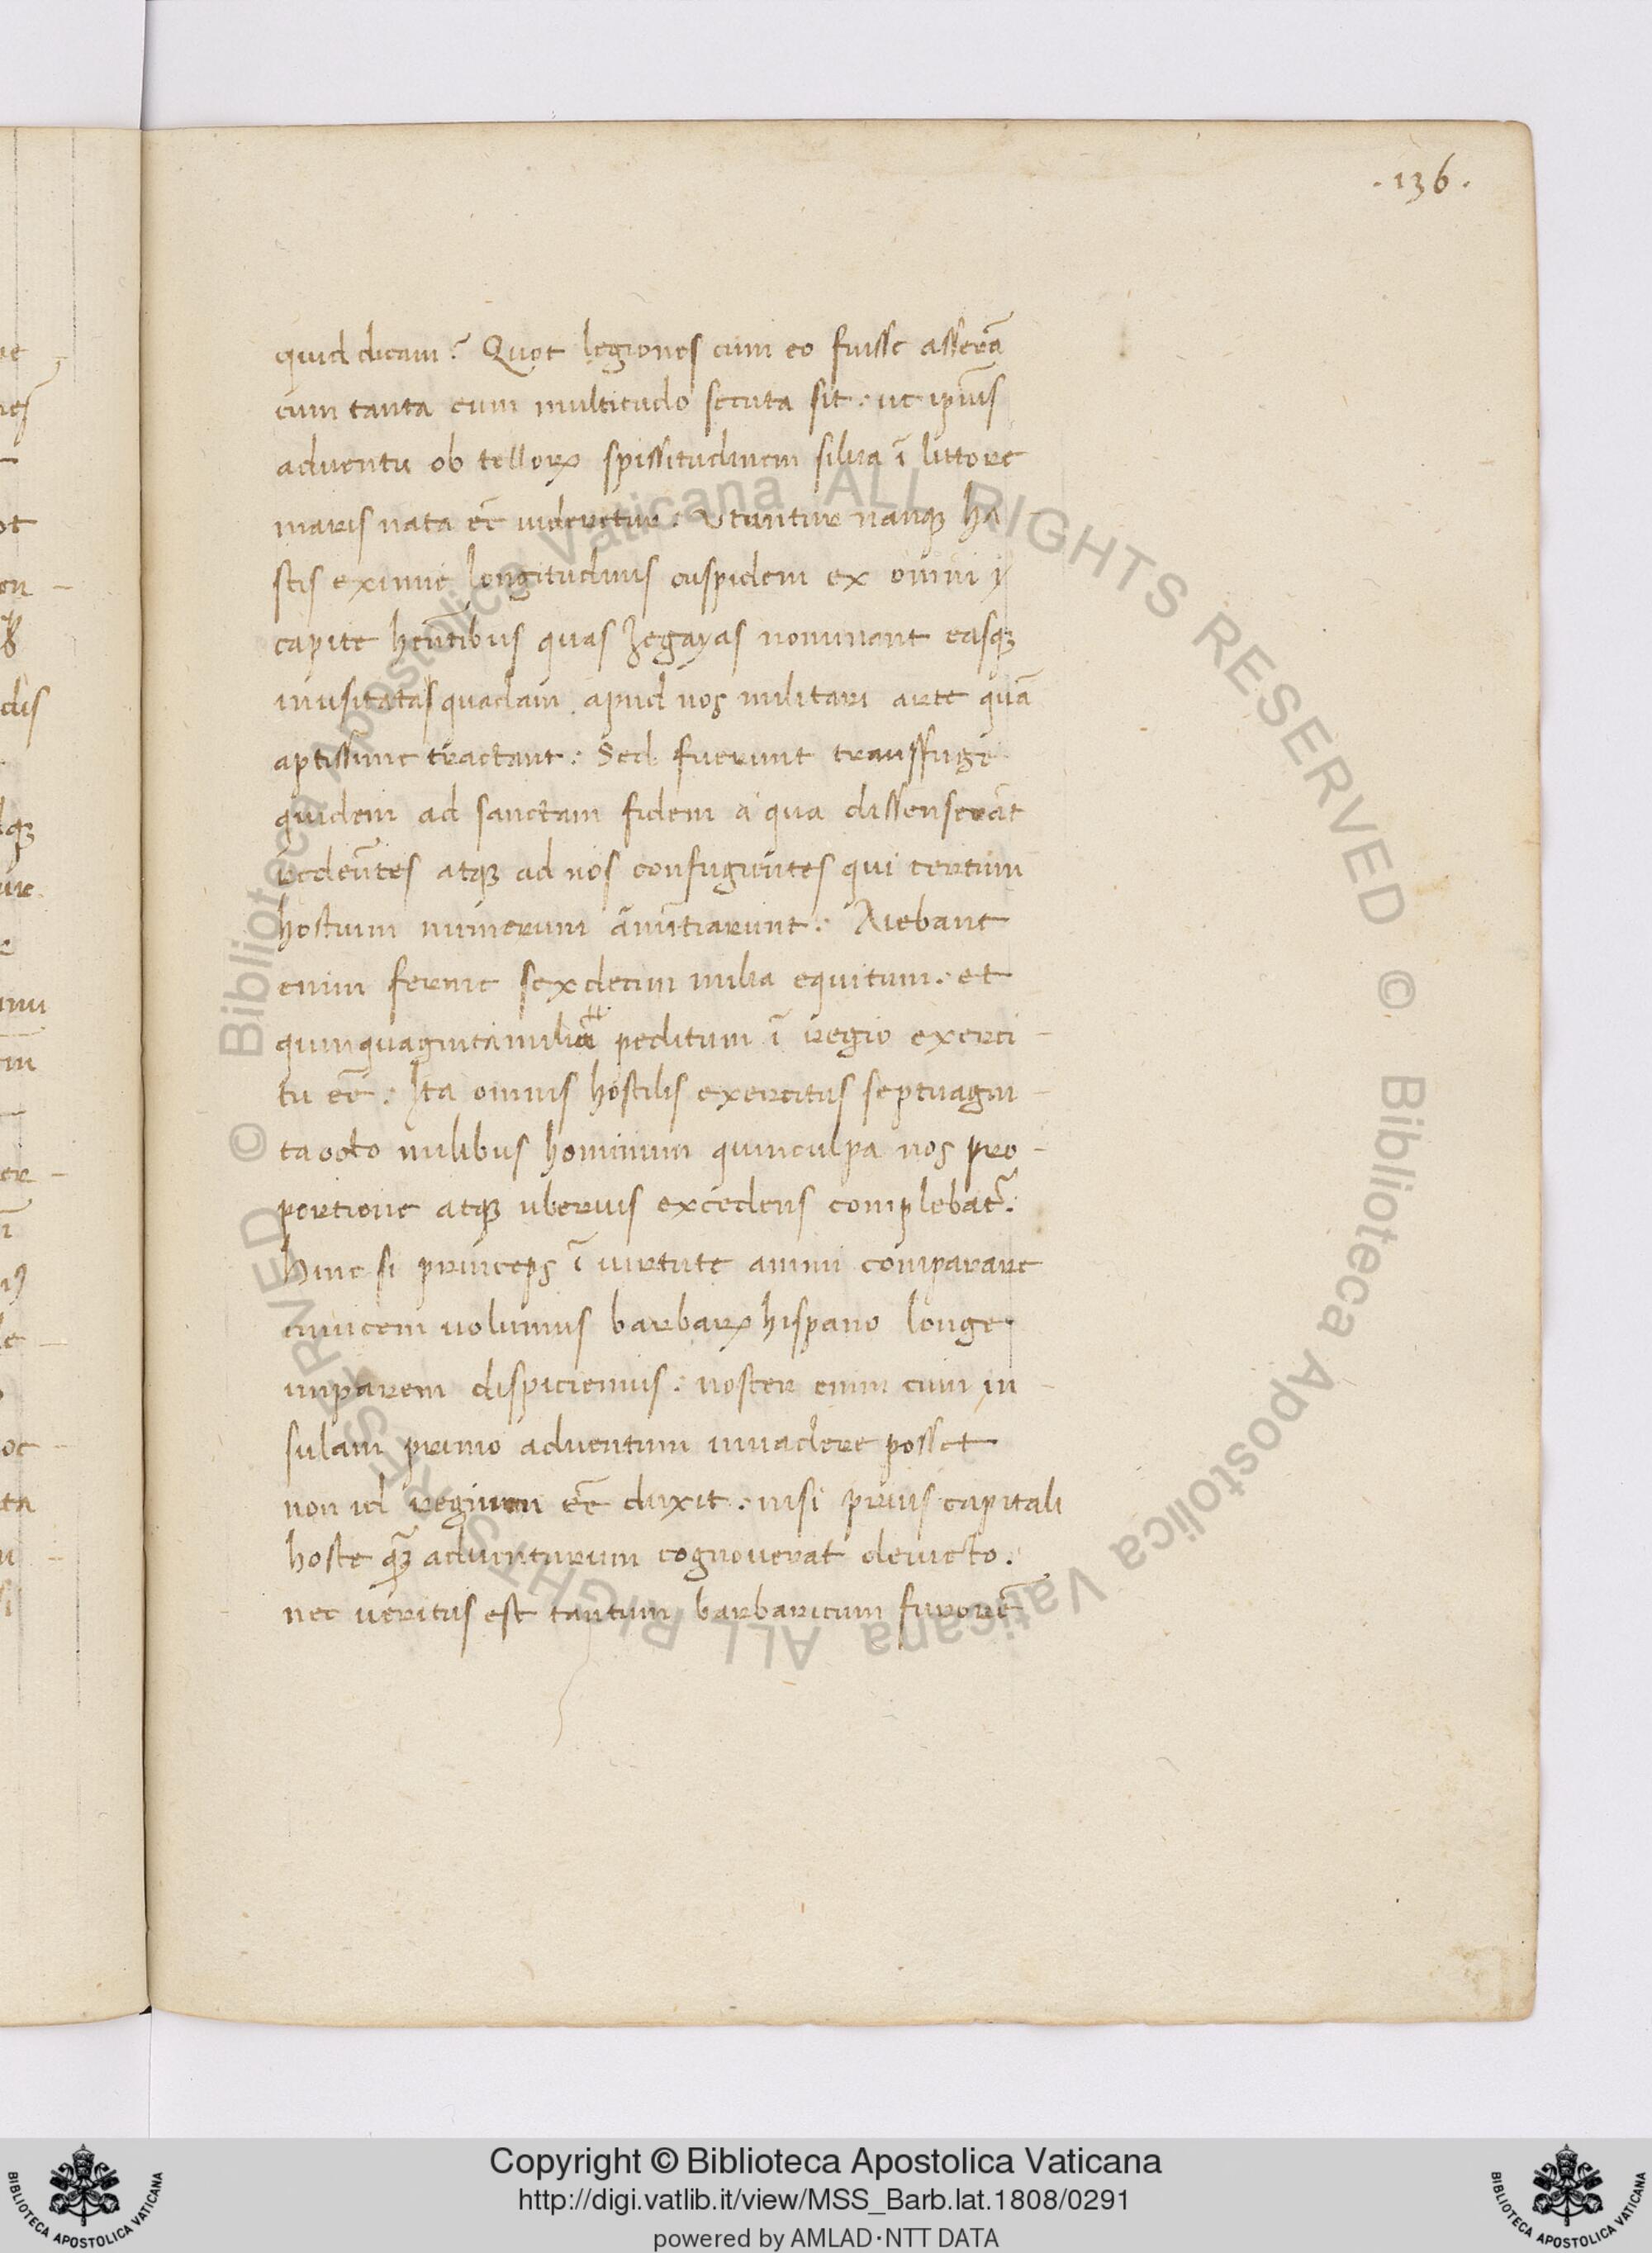 .136.
quid dicam? Quot legiones cum eo fuisse asserā
cum tanta eum multitudo secuta sit: ut ipius
adventu ob telloꝝ spissitudinem silva ī littore
maris nata eē videretur: Utuntur nanqꝫ ha
stis eximie longitudinis cuspidem ex omni
capite hentibus quas zegayas nominant easqꝫ
inusitatas quadam apud nos militari arte quā
aptissime tractant: Sed fuerunt transfuge
quidem ad sanctam fidem a qua dissenserāt
redeuntes atqꝫ ad nos confugientes qui certum
hostium numerum ānūtiarunt: Aiebant
enim ferme sexdecim milia equitum. et
quinquagintamilia peditum ī regio exerci-
tu eē: Ita omnis hostilis exercitus septuagin-
ta octo milibus hominum quincupla nos pro-
portione atqꝫ uberius excedens complebat᷑:
Hinc si princeps ī virtute animi comparare
invicem volumus barbaꝝ hispano longe
imparem dispiciemus: noster enim cum in-
sulam primo adventum invadere posset
non id regium eē duxit. nisi prius capitali
hoste adventurum cognoverat devicto.
nec veritus est tantum barbaricum furorē
Copyright © Biblioteca Apostolica Vaticana
http://digi.vatlib.it/view/MSS_Barb.lat.1808/0291
powered by AMLAD·NTT DATA
BIBLIOTECA APOSTOLICA VATICANA
BIBLIOTECA APOSTOLICA VATICANA
© Biblioteca Apostolica Vaticana ALL RIGHTS RESERVED © Biblioteca Apostolica Vaticana ALL RIGHTS RESERVED